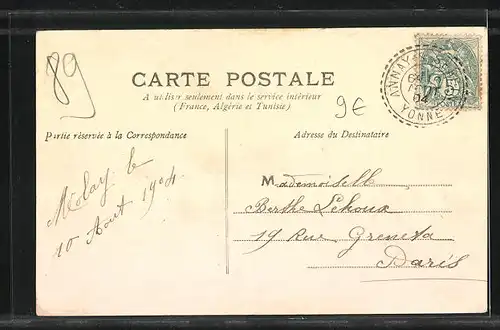 89
CARTE POSTALE
A utiliser seulement dans le service intérieur
(France, Algérie et Tunisie)
9€
Partie réservée à la Correspondance
Adresse du Destinataire
Môlay le
10 Août 1904
Mademoiselle
Berthe Lehoux
19 Rue Greneta
Paris
ANNAY
YONNE
04
5